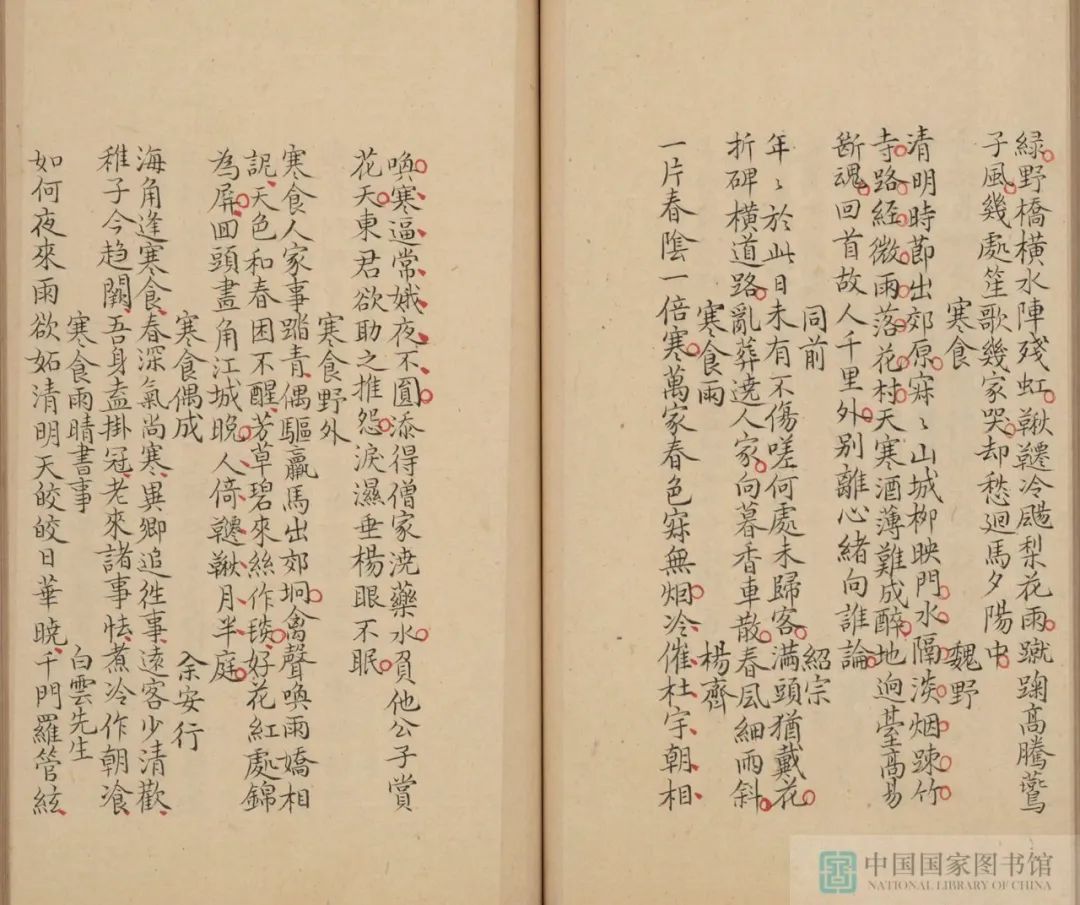 緑野橋橫水陣殘虹鞦韆冷颺梨花雨蹴踘高騰鷰
子風幾處笙歌幾家哭却愁迴馬夕陽中
寒食 魏野
清明時節出郊原寂〻山城柳映門水隔淡烟踈竹
寺路経微雨落花村天寒酒薄難成醉地逈臺高易
斷魂回首故人千里外别離心緒向誰論
同前 紹宗
年〻於此日未有不傷嗟何處未歸客滿頭猶戴花
折碑橫道路亂葬遶人家向暮香車散春風細雨斜
寒食雨 楊齊
一片春陰一倍寒萬家春色寂無烟冷催杜宇朝相
喚寒逼常娥夜不圓添得僧家澆藥水負他公子賞
花天東君欲助之推怨淚濕垂楊眼不眠
寒食野外
寒食人家事踏青偶驅羸馬出郊坰禽聲喚雨嬌相
訵天色和春困不醒芳草碧來絲作毯好花紅處錦
為屏回頭畫角江城晚人倚韆鞦月半庭
寒食偶成 余安行
海角逢寒食春深氣尚寒異卿追徃事遠客少清歡
稚子今趋闕吾身盍掛冠老來諸事怯煮冷作朝飡
寒食雨晴書事 白雲先生
如何夜來雨欲妬清明天皎皎日華曉千門羅管絃
中国国家图书馆
NATIONAL LIBRARY OF CHINA